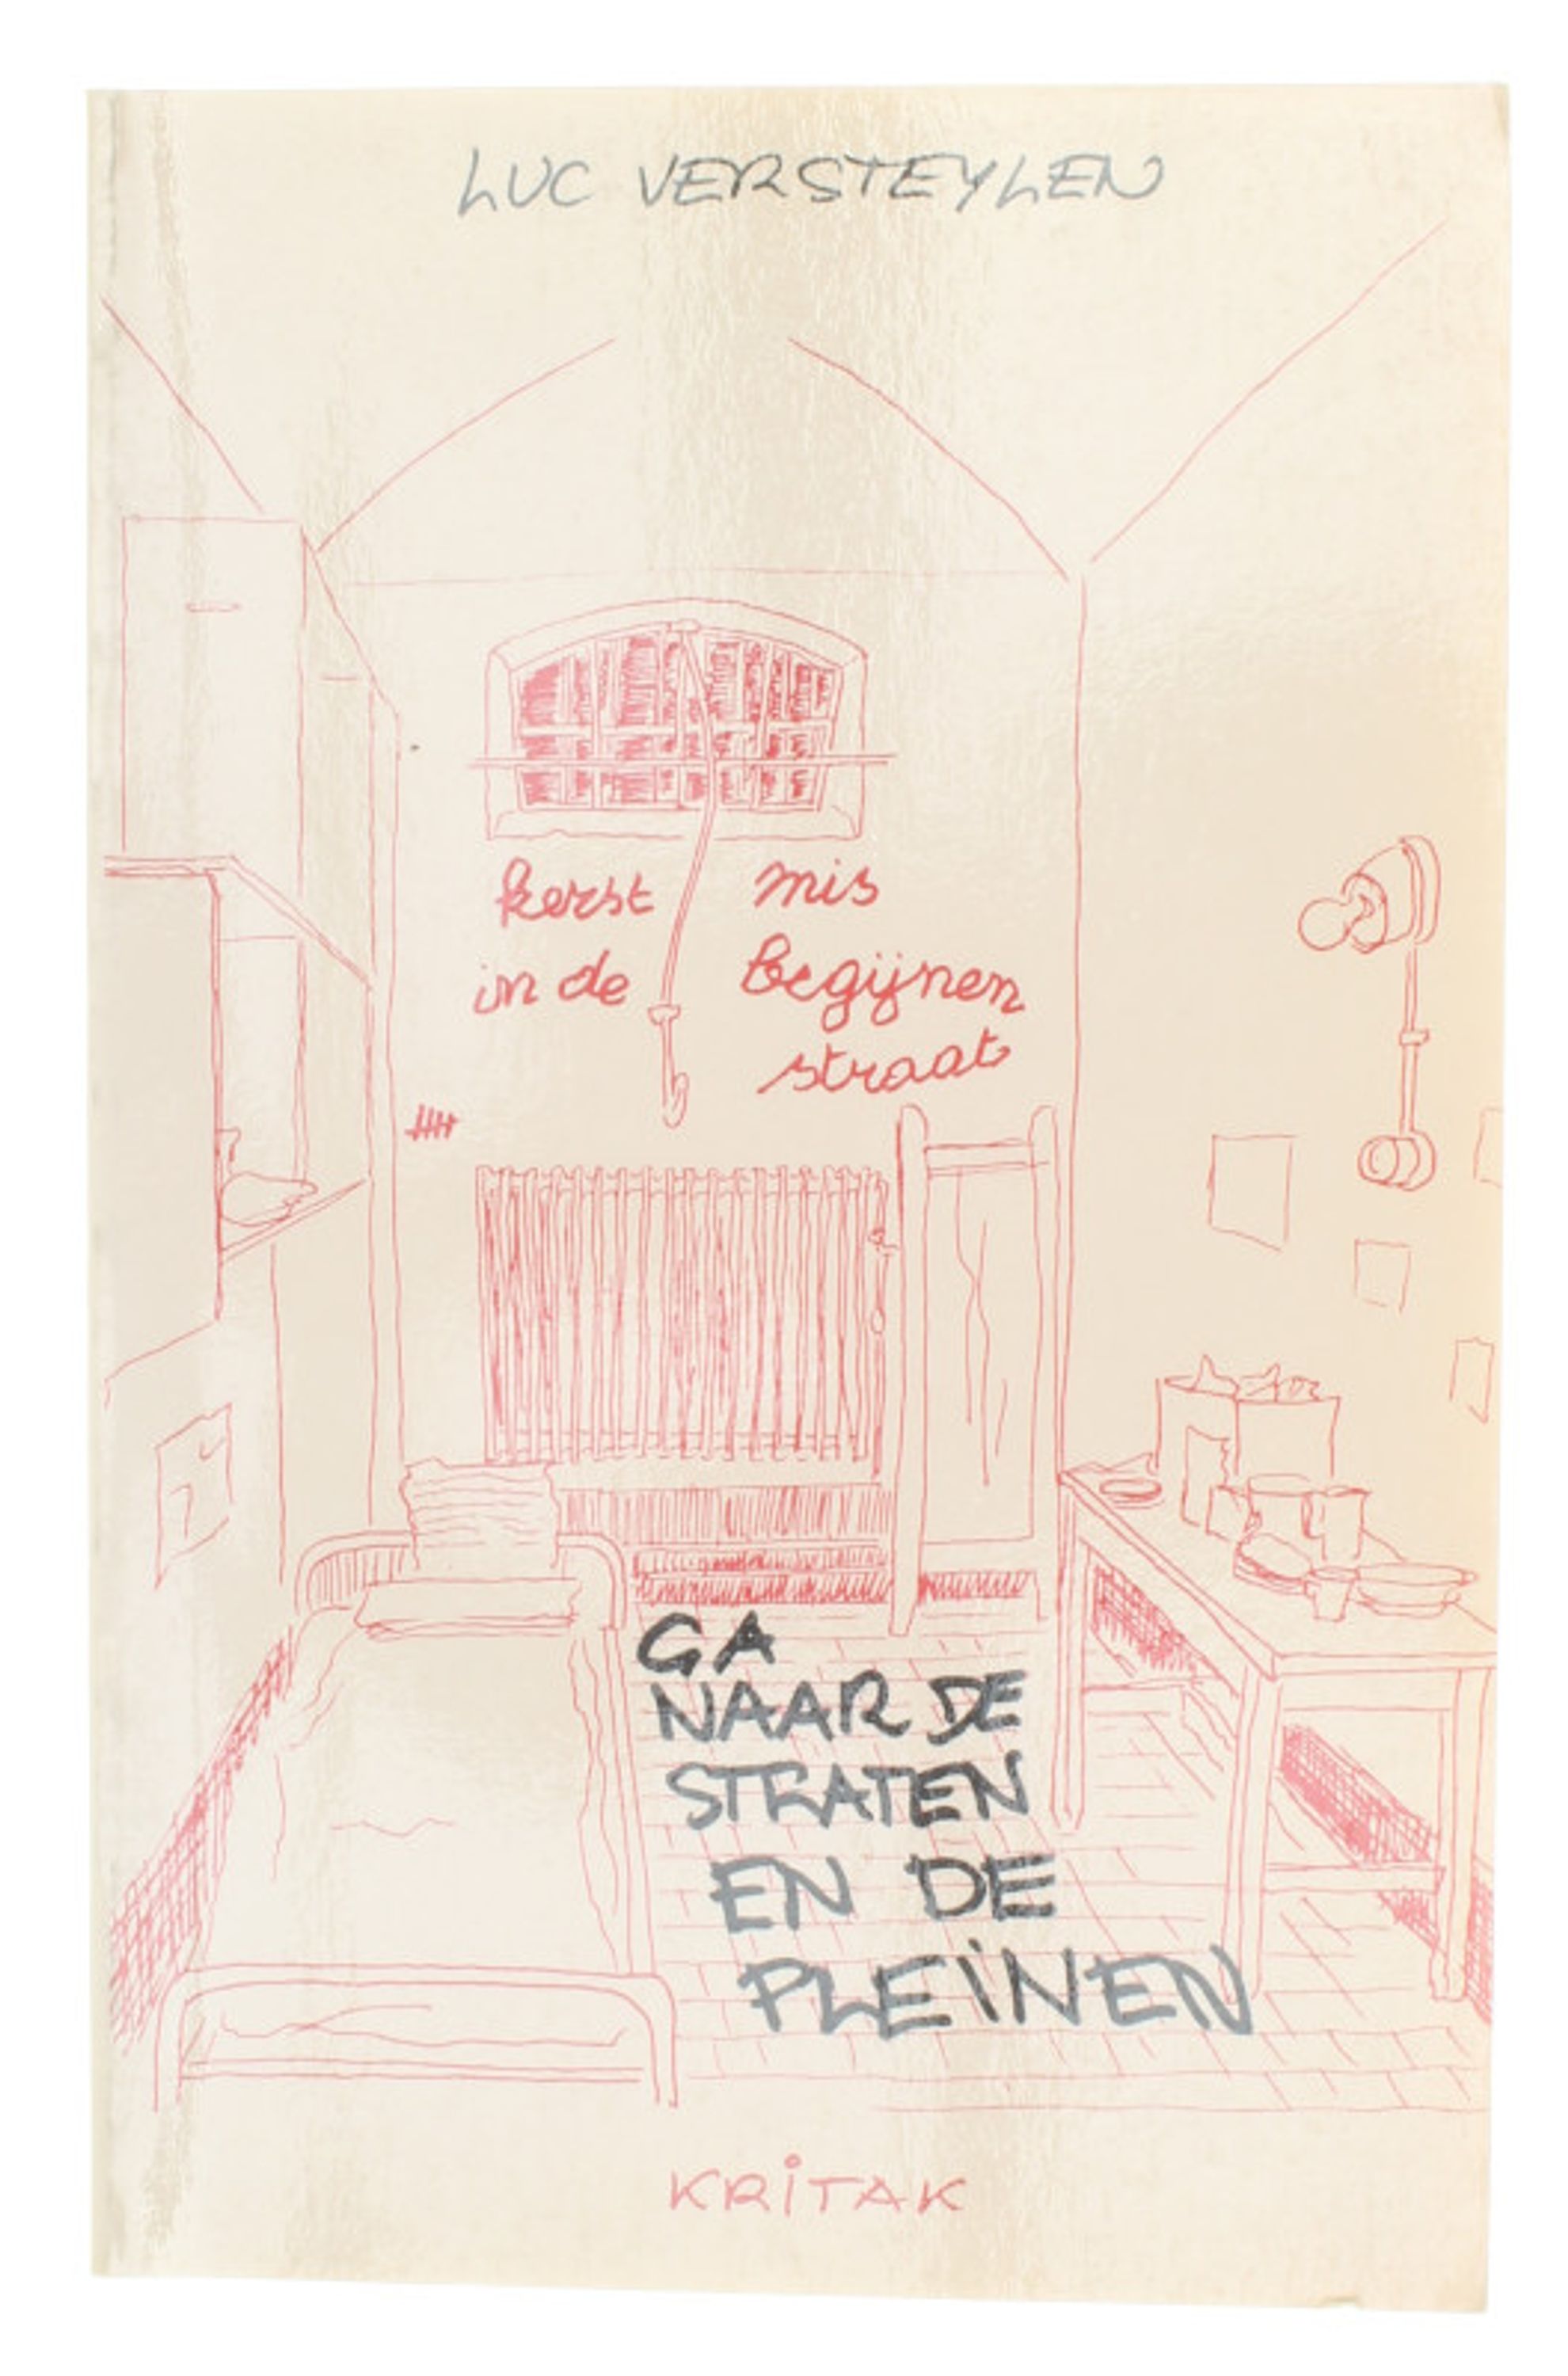 LUC VERSTEYLEN
kerst mis
in de begijnen
straat
GA
NAAR DE
STRATEN
EN DE
PLEINEN
KRITAK